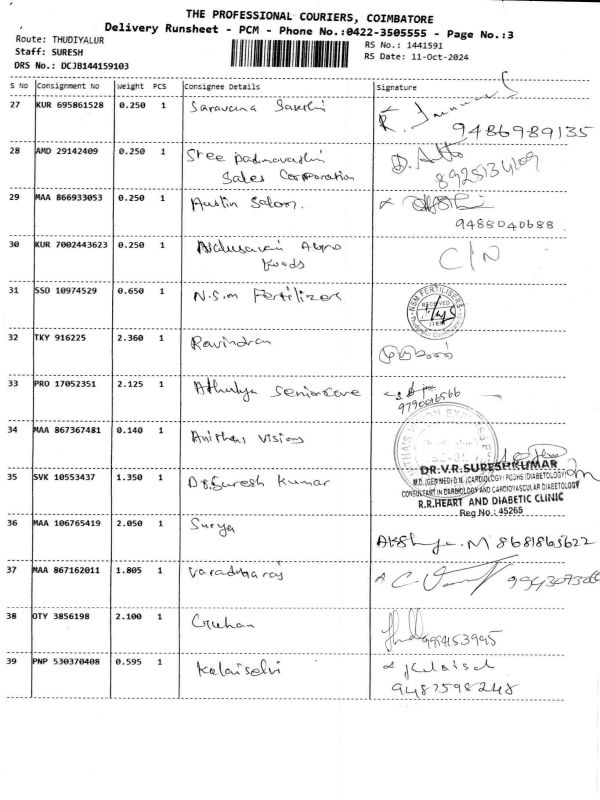 THE PROFESSIONAL COURIERS, COIMBATORE
Delivery Runsheet - PCM - Phone No.:0422-3505555 - Page No.:3
Route: THUDIYALUR
RS No.: 1441591
Staff: SURESH
RS Date: 11-Oct-2024
DRS No.: DCJB144159103
S No Consignment No Weight PCS Consignee Details Signature
27 KUR 695861528 0.250 1 Saravana Sakthi
9486989135
28 AMD 29142409 0.250 1 Sree padmavathi
Sales Corporation
8925134109
29 MAA 866933053 0.250 1 Austin Saloon.
9488040688
30 KUR 7002443623 0.250 1 Agro
foods
C/N
31 SSO 10974529 0.650 1 N.S.m Fertilizers
NSM FERTILISERS
RECEIVED
ITEM
32 TKY 916225 2.360 1 Ravindran
33 PRO 17052351 2.125 1 Athulya Seniorcare
34 MAA 867367481 0.140 1 Anithas Visions
35 SVK 10553437 1.350 1 Dr. Suresh Kumar
DR.V.R.SURESHKUMAR
M.D.(GEN MED) D.M. (CARDIOLOGY) PGDHS (DIABETOLOGY)
CONSULTANT IN CARDIOLOGY AND CARDIOVASCULAR DIABETOLOGY
R.R.HEART AND DIABETIC CLINIC
Reg No : 45265
36 MAA 106765419 2.050 1 Surya
Akshaya. M 8681865622
37 MAA 867162011 1.805 1 Varadharaj
38 OTY 3856198 2.100 1 Guhan
39 PNP 530370408 0.595 1 Kalaiselvi
9487598248